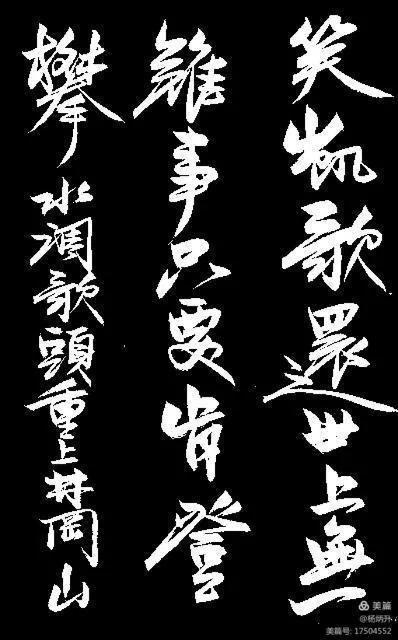 笑凱歌還世上無
難事只要肯登
攀
水調歌頭重上井岡山
美篇
@杨炳升
美篇号: 17504552